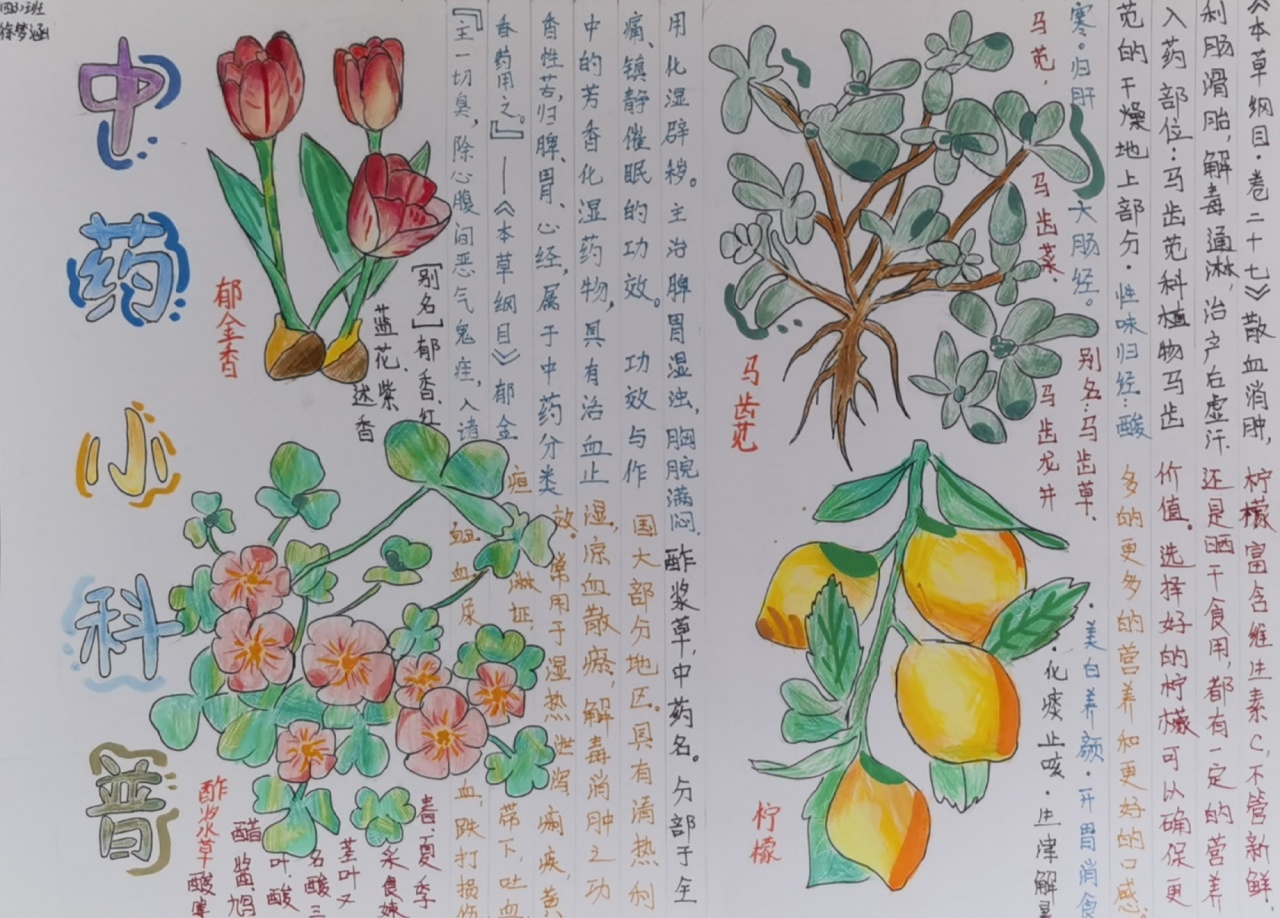 四3班
徐梦涵
中药小科普
郁金香
[别名]郁香、红
蓝花、紫
述香
『主一切臭，除心腹间恶气鬼疰，入诸
香药用之。』——《本草纲目》郁金
香性苦，归脾、胃、心经，属于中药分类
中的芳香化湿药物，具有活血止
痛、镇静催眠的功效。功效与作
用化湿辟秽。主治脾胃湿浊，胸脘满闷
《本草纲目·卷二十七》散血消肿，
利肠滑胎，解毒通淋，治产后虚汗
入药部位：马齿苋科植物马齿
苋的干燥地上部分·性味归经：酸
寒。归肝大肠经。
别名：马齿草、
马苋，马齿菜、马齿龙芽
马齿苋
酢浆草，中药名。分部于全
国大部分地区。具有清热利
湿，凉血散瘀，解毒消肿之功
效。常用于湿热泄泻，痢疾，黄
疸，淋证，带下，吐血
衄血，尿血，跌打损伤
春、夏季
采食嫩
茎叶又
名酸三
叶、酸
醋酱、鸠
酸
酢浆草
柠檬富含维生素C，不管新鲜，
还是晒干食用，都有一定的营养
价值。选择好的柠檬可以确保更
多的更多的营养和更好的口感
·美白养颜·开胃消食
·化痰止咳·生津解
柠檬